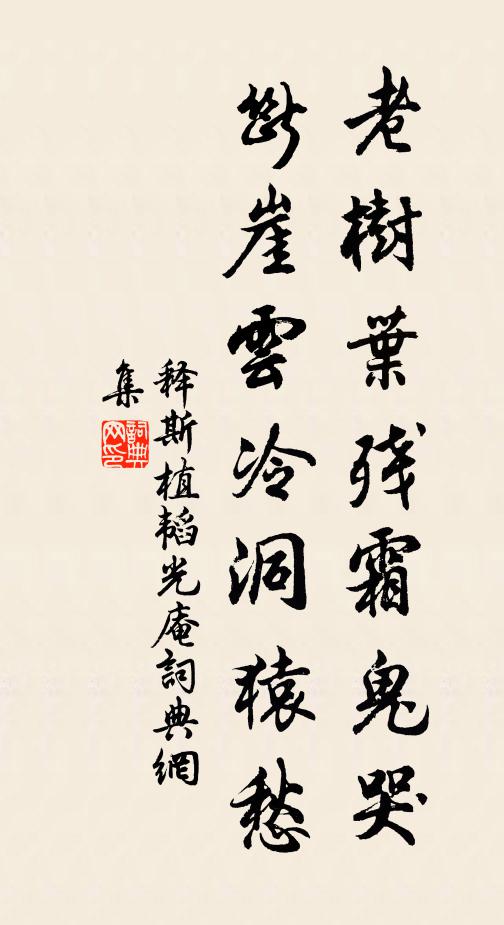 老樹葉残霜鬼哭
斷崖雲冷洞猿愁
释斯植韬光庵詞典網
集
詞典网印